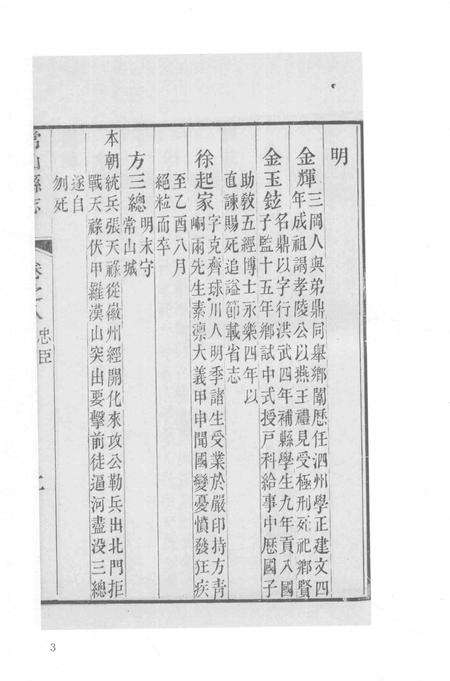 明
金輝三岡人與弟鼎同舉鄉闈歷任泗州學正建文四
年成祖謁孝陵公以燕王禮見受極刑死祀鄉賢
金玉鉉名鼎以字行洪武四年補縣學生九年貢入國
子監十五年鄉試中式授戶科給事中歷國子
助敎五經博士永樂四年以
直諫賜死追謚節載省志
徐起家字克齊球川人明季諸生受業於嚴印持方青
峒兩先生素凛大義甲申聞國變憂憤發狂疾
至乙酉八月
絕粒而卒
方三總明末守
常山城
本朝統兵張天祿從徽州經開化來攻公勒兵出北門拒
戰天祿伏甲羅漢山突出要擊前徒逼河盡没三總
遂自
刎死
常山縣志
卷之八
忠臣
3